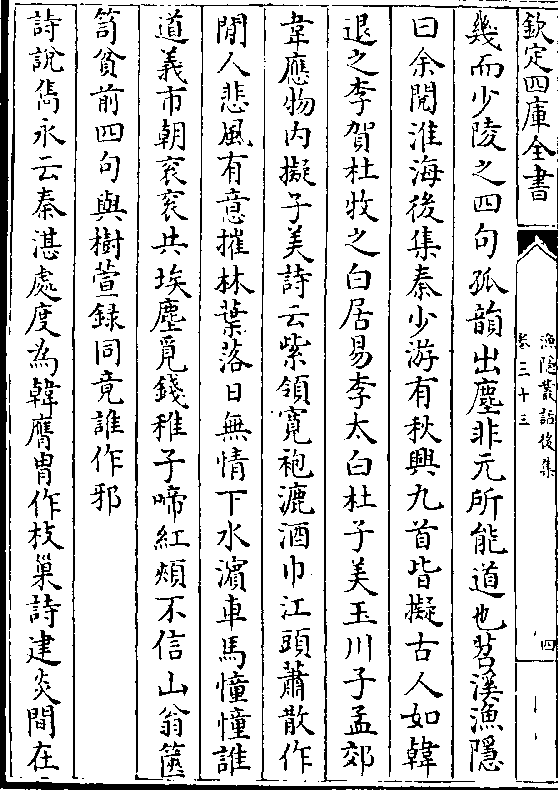 欽定四庫全書
漁隱叢話後集
卷三十三
四
幾而少陵之四句孤韻出塵非元所能道也苕溪漁隱
曰余閱淮海後集秦少游有秋興九首皆擬古人如韓
退之李賀杜牧之白居易李太白杜子美玉川子孟郊
韋應物内擬子美詩云紫領寛袍漉酒巾江頭蕭散作
閒人悲風有意摧林葉落日無情下水濵車馬憧憧誰
道義市朝衮衮共埃塵覓錢稚子啼紅頰不信山翁篋
笥貧前四句與樹萱録同竟誰作邪
詩說雋永云秦湛處度為韓膺胄作枝巢詩建炎間在